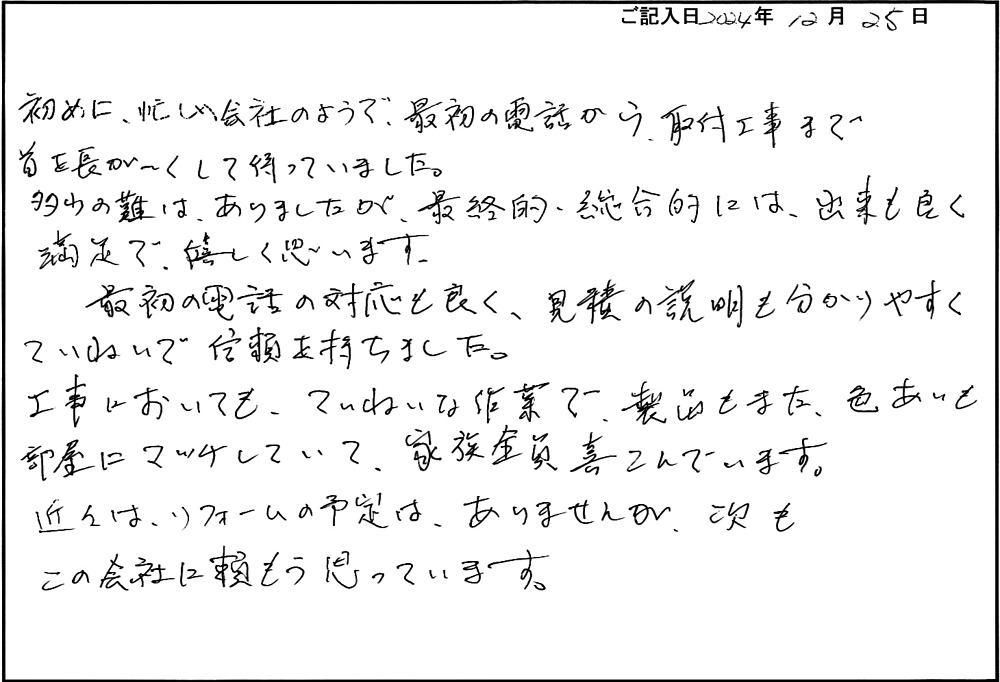 ご記入日2024年 12月 25日
初めに、忙しい会社のようで、最初の電話から、取付工事まで
首を長が～くして待っていました。
多少の難は、ありましたが、最終的・総合的には、出来も良く
満足で、嬉しく思います。
最初の電話の対応も良く、見積の説明も分かりやすく
ていねいで信頼を持ちました。
工事においても、ていねいな作業で、製品もまた、色あいも
部屋にマッチしていて、家族全員喜こんでいます。
近々は、リフォームの予定は、ありませんが、次も
この会社に頼もう思っています。